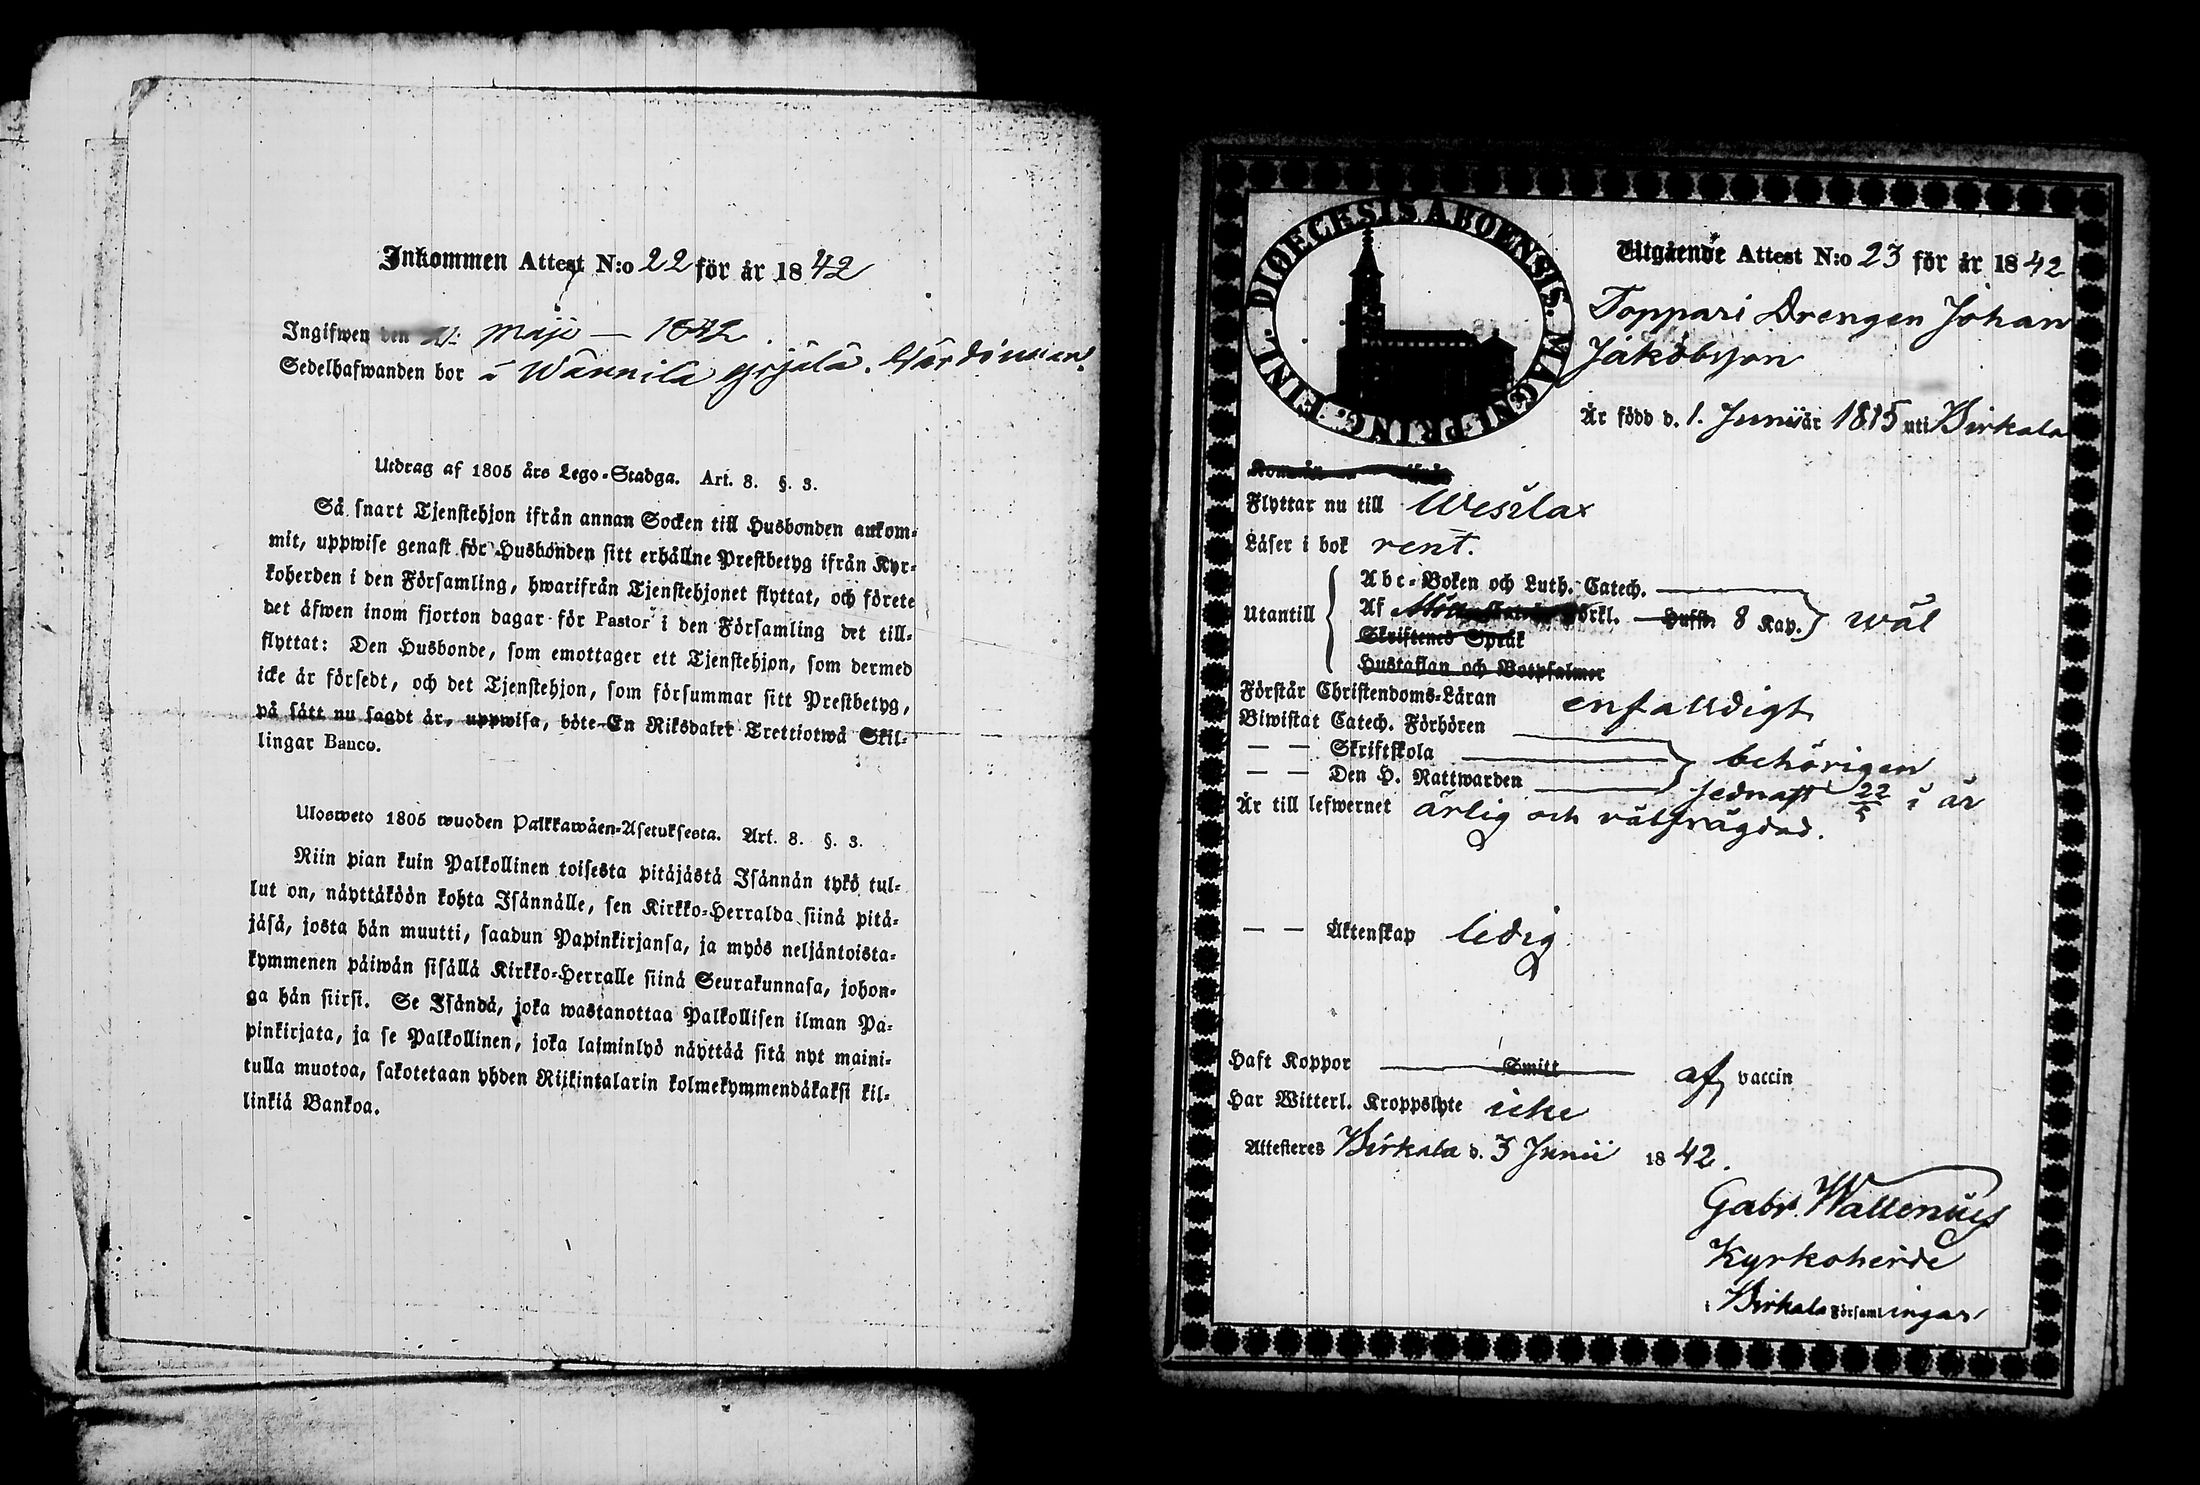 Inkommen Attest N:o 22 för år 1842
Ingifwen den Maji — 1842
Sedelhafwanden bor å Wännilä
Utdrag af 1805 års Lego-Stadga. Art. 8. §. 3.
Så snart Tjenstehjon ifrån annan Socken till Husbonden ankom-
mit, uppwise genast för Husbonden sitt erhållne Prestbetyg ifrån Kyr-
koherden i den Församling, hwarifrån Tjenstehjonet flyttat, och förete
det äfwen inom fjorton dagar för Pastor i den Församling det till-
flyttat: Den Husbonde, som emottager ett Tjenstehjon, som dermed
icke är försedt, och det Tjenstehjon, som försummar sitt Prestbetyg,
på sätt nu sagdt är, uppwisa, böte En Riksdaler Trettiotwå Skil-
lingar Banco.
Ulosweto 1805 wuoden Palkkawäen-Asetuksesta. Art. 8. §. 3.
Niin pian kuin Palkollinen toisesta pitäjästä Isännän tykö tul-
lut on, näyttäköön kohta Isännälle, sen Kirkko-Herralda siinä pitä-
jäsä, josta hän muutti, saadun Papinkirjansa, ja myös neljäntoista-
kymmenen päiwän sisällä Kirkko-Herralle siinä Seurakunnasa, johon-
ga hän siirsi. Se Isändä, joka wastanottaa Palkollisen ilman Pa-
pinkirjata, ja se Palkollinen, joka laiminlyö näyttää sitä nyt maini-
tulla muotoa, sakotetaan yhden Riikintalarin kolmekymmendäkaksi kil-
linkiä Bankoa.
DIOECESIS ABOENSIS. MAGNI PRINC. FINL.
Utgående Attest N:o 23 för år 1842
Toppari Drengen Johan
Jakobsson
Är född d. 1. Junii år 1815 uti Birkala
Flyttar nu till Wesilax
Läser i bok rent.
Utantill
Abc-Boken och Luth. Catech.
Af Förkl. Hufst. 8 Kap. wäl
Skriftenes Språk
Hustaflan och Botpsalmer
Förstår Christendoms-Läran enfalldigt
Biwistat Catech. Förhören
— — Skriftskola behörigen
— — Den H. Nattwarden sednast 22/5 i år
Är till lefwernet ärlig och välfrägdad.
— — Äktenskap ledig
Haft Koppor Smitt af vaccin
Har Witterl. Kroppslyte icke
Attesteres Birkala d. 3 Junii 1842.
Gabr. Wallenius
Kyrkoherde
i Birkala Församlingar